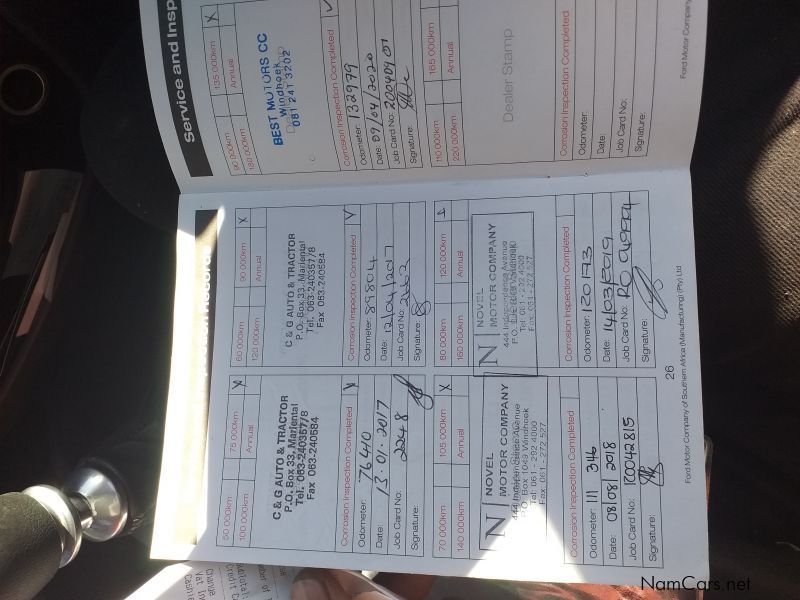 Service and Insp
90 000km
135 000km X
180 000km
Annual
BEST MOTORS CC
Windhoek
081 241 3202
Corrosion Inspection Completed ✓
Odometer: 132979
Date: 09/04/2020
Job Card No: 20040901
Signature:
110 000km
165 000km
220 000km
Annual
Dealer Stamp
Corrosion Inspection Completed
Odometer:
Date:
Job Card No:
Signature:
Ford Motor Company
60 000km
90 000km X
120 000km
Annual
C & G AUTO & TRACTOR
P.O. Box 33, Mariental
Tel. 063-240357/8
Fax 063-240584
Corrosion Inspection Completed ✓
Odometer: 89804
Date: 12/04/2017
Job Card No:
Signature:
80 000km
120 000km
160 000km
Annual
N NOVEL
MOTOR COMPANY
444 Independence Avenue
Tel: 061 - 292 4000
Fax: 061 - 272 527
Corrosion Inspection Completed
Odometer: 120193
Date: 14/03/2019
Job Card No:
Signature:
50 000km
75 000km X
100 000km
Annual
C & G AUTO & TRACTOR
P.O. Box 33, Mariental
Tel. 063-240357/8
Fax 063-240584
Corrosion Inspection Completed
Odometer: 76410
Date: 13.01.2017
Job Card No: 2248
Signature:
70 000km
105 000km X
140 000km
Annual
N NOVEL
MOTOR COMPANY
444 Independence Avenue
P.O. Box 1049 Windhoek
Tel: 061 - 292 4000
Fax: 061 - 272 527
Corrosion Inspection Completed
Odometer: 111 346
Date: 08/08/2018
Job Card No: R0042815
Signature:
26
Ford Motor Company of Southern Africa (Manufacturing) (Pty) Ltd
NamCars.net